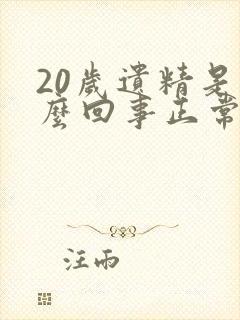 20歲遺精是
麼回事正常
汪雨